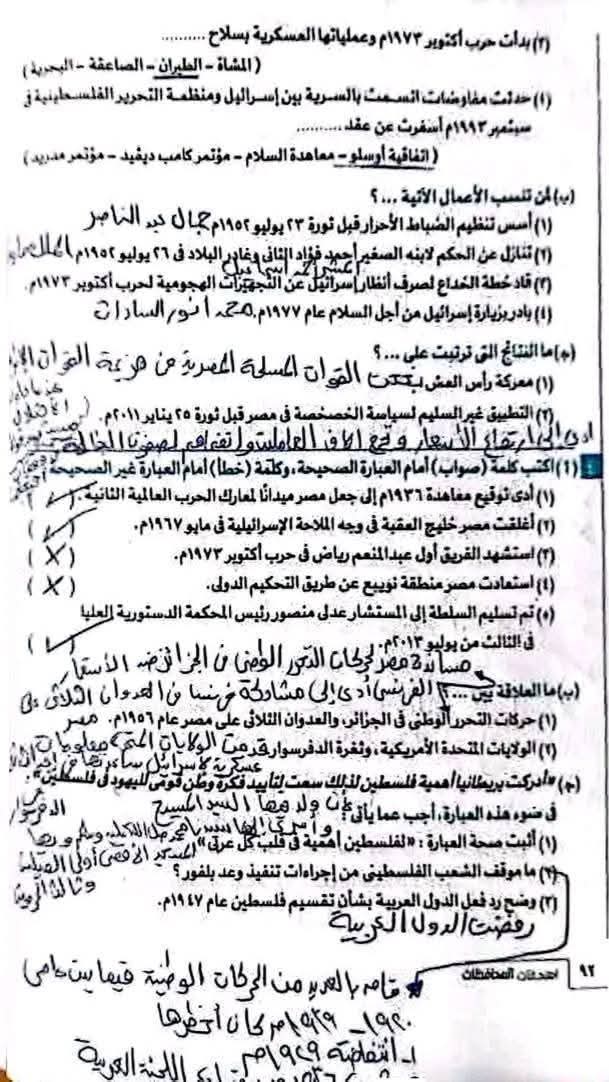 (٣) بدأت حرب أكتوبر ١٩٧٣م وعملياتها العسكرية بسلاح ..........
( المشاة - الطيران - الصاعقة - البحرية )
(٤) حدثت مفاوضات اتسمت بالسرية بين إسرائيل ومنظمة التحرير الفلسطينية فى
سبتمبر ١٩٩٣م أسفرت عن عقد ..........
( اتفاقية أوسلو - معاهدة السلام - مؤتمر كامب ديفيد - مؤتمر مدريد )
(ب) لمن تنسب الأعمال الآتية ...؟
(١) أسس تنظيم الضباط الأحرار قبل ثورة ٢٣ يوليو ١٩٥٢م جمال عبد الناصر
(٢) تنازل عن الحكم لابنه الصغير أحمد فؤاد الثانى وغادر البلاد فى ٢٦ يوليو ١٩٥٢م الملك
(٣) قاد خطة الخداع لصرف أنظار إسرائيل عن التجهيزات الهجومية لحرب أكتوبر ١٩٧٣م.
(٤) بادر بزيارة إسرائيل من أجل السلام عام ١٩٧٧م. محمد أنور السادات
(ج) ما النتائج التى ترتبت على ...؟
(١) معركة رأس العش القوات المسلحة المصرية من هزيمة القوات
(٢) التطبيق غير السليم لسياسة الخصخصة فى مصر قبل ثورة ٢٥ يناير ٢٠١١م.
أدى إلى ارتفاع الأسعار
٤ (أ) اكتب كلمة (صواب) أمام العبارة الصحيحة، وكلمة (خطأ) أمام العبارة غير الصحيحة
(١) أدى توقيع معاهدة ١٩٣٦م إلى جعل مصر ميدانًا لمعارك الحرب العالمية الثانية. ( ✓ )
(٢) أغلقت مصر خليج العقبة فى وجه الملاحة الإسرائيلية فى مايو ١٩٦٧م. ( ✓ )
(٣) استشهد الفريق أول عبدالمنعم رياض فى حرب أكتوبر ١٩٧٣م. ( X )
(٤) استعادت مصر منطقة نويبع عن طريق التحكيم الدولى. ( X )
(٥) تم تسليم السلطة إلى المستشار عدلى منصور رئيس المحكمة الدستورية العليا
فى الثالث من يوليو ٢٠١٣م. ( ✓ )
مساندة مصر لحركات التحرر الوطنى فى الجزائر ضد الاستعمار
(ب) ما العلاقة بين ...؟ الفرنسى أدى إلى مشاركة فرنسا فى العدوان الثلاثى على
(١) حركات التحرر الوطنى فى الجزائر، والعدوان الثلاثى على مصر عام ١٩٥٦م. مصر
(٢) الولايات المتحدة الأمريكية، وثغرة الدفرسوار. قدمت الولايات المتحدة معلومات
عسكرية لإسرائيل ساعدتها فى
(ج) «أدركت بريطانيا أهمية فلسطين لذلك سعت لتأييد فكرة وطن قومى لليهود فى فلسطين».
الدفرسوار
فى ضوء هذه العبارة، أجب عما يأتى: ولد بها السيد المسيح
(١) أثبت صحة العبارة : «لفلسطين أهمية فى قلب كل عربى»
(٢) ما موقف الشعب الفلسطينى من إجراءات تنفيذ وعد بلفور؟
(٣) وضح رد فعل الدول العربية بشأن تقسيم فلسطين عام ١٩٤٧م.
رفضت الدول العربية
٩٢ امتحانات المحافظات
قام بالعديد من الحركات الوطنية فيما بين عامى
١٩٢٠ - ١٩٣٩م كان أخطرها
١- انتفاضة ١٩٢٩م
اللجنة العربية